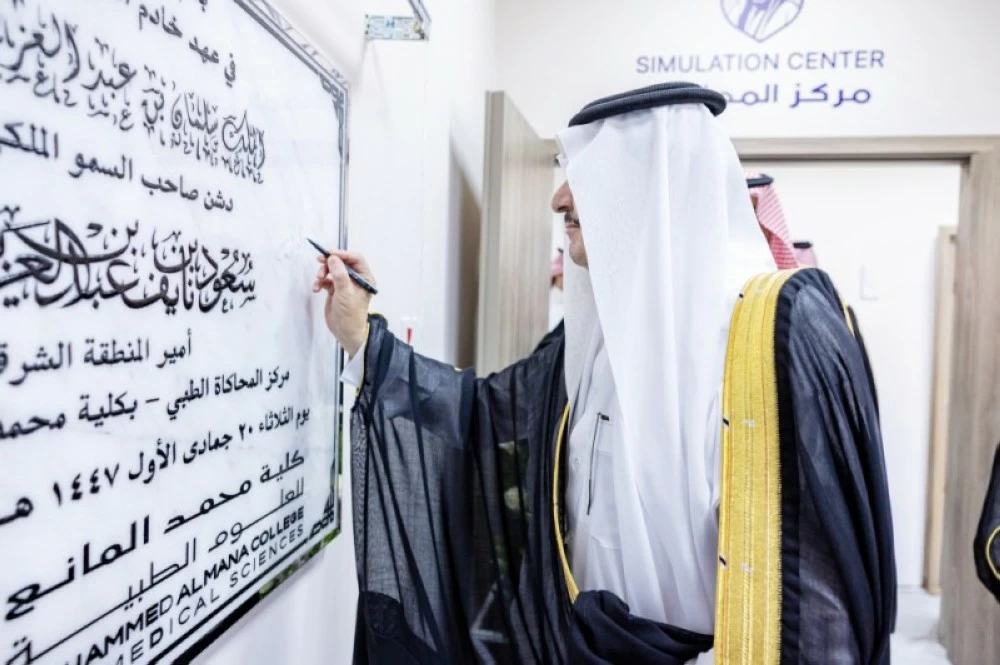 في عهد خادم
الملك سلمان بن عبد العزيز
دشن صاحب السمو الملكي
سعود بن نايف بن عبد العزيز
أمير المنطقة الشرق
مركز المحاكاة الطبي – بكلية محمد
يوم الثلاثاء ٢٠ جمادى الأول ١٤٤٧ هـ
كلية محمد المانع
للعلوم الطبية
MOHAMMED ALMANA COLLEGE
MEDICAL SCIENCES
SIMULATION CENTER
مركز